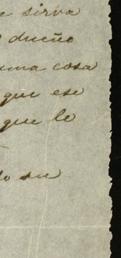 e sirva
dueño
una cosa
que ese
que le
do su